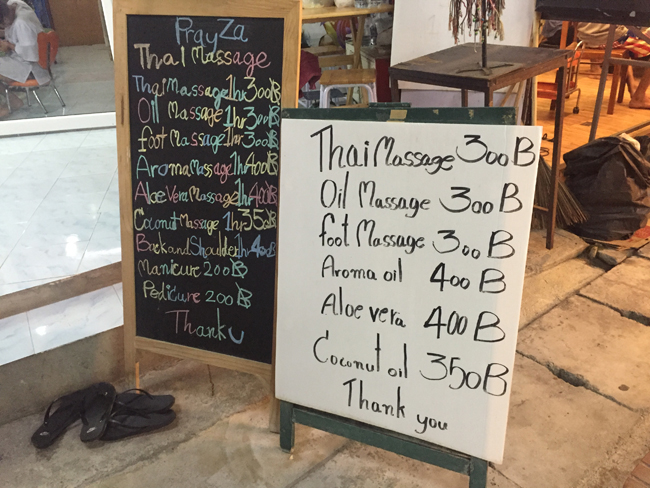 PrayZa
Thai Massage
Thai Massage 1hr 300B
Oil Massage 1hr 300B
foot Massage 1hr 300B
Aroma Massage 1hr 400B
Aloe Vera Massage 1hr 400B
Coconut Massage 1hr 350B
Back and Shoulder 1hr 400B
Manicure 200B
Pedicure 200B
Thank U
Thai Massage 300B
Oil Massage 300B
foot Massage 300B
Aroma oil 400B
Aloe vera 400B
Coconut oil 350B
Thank you